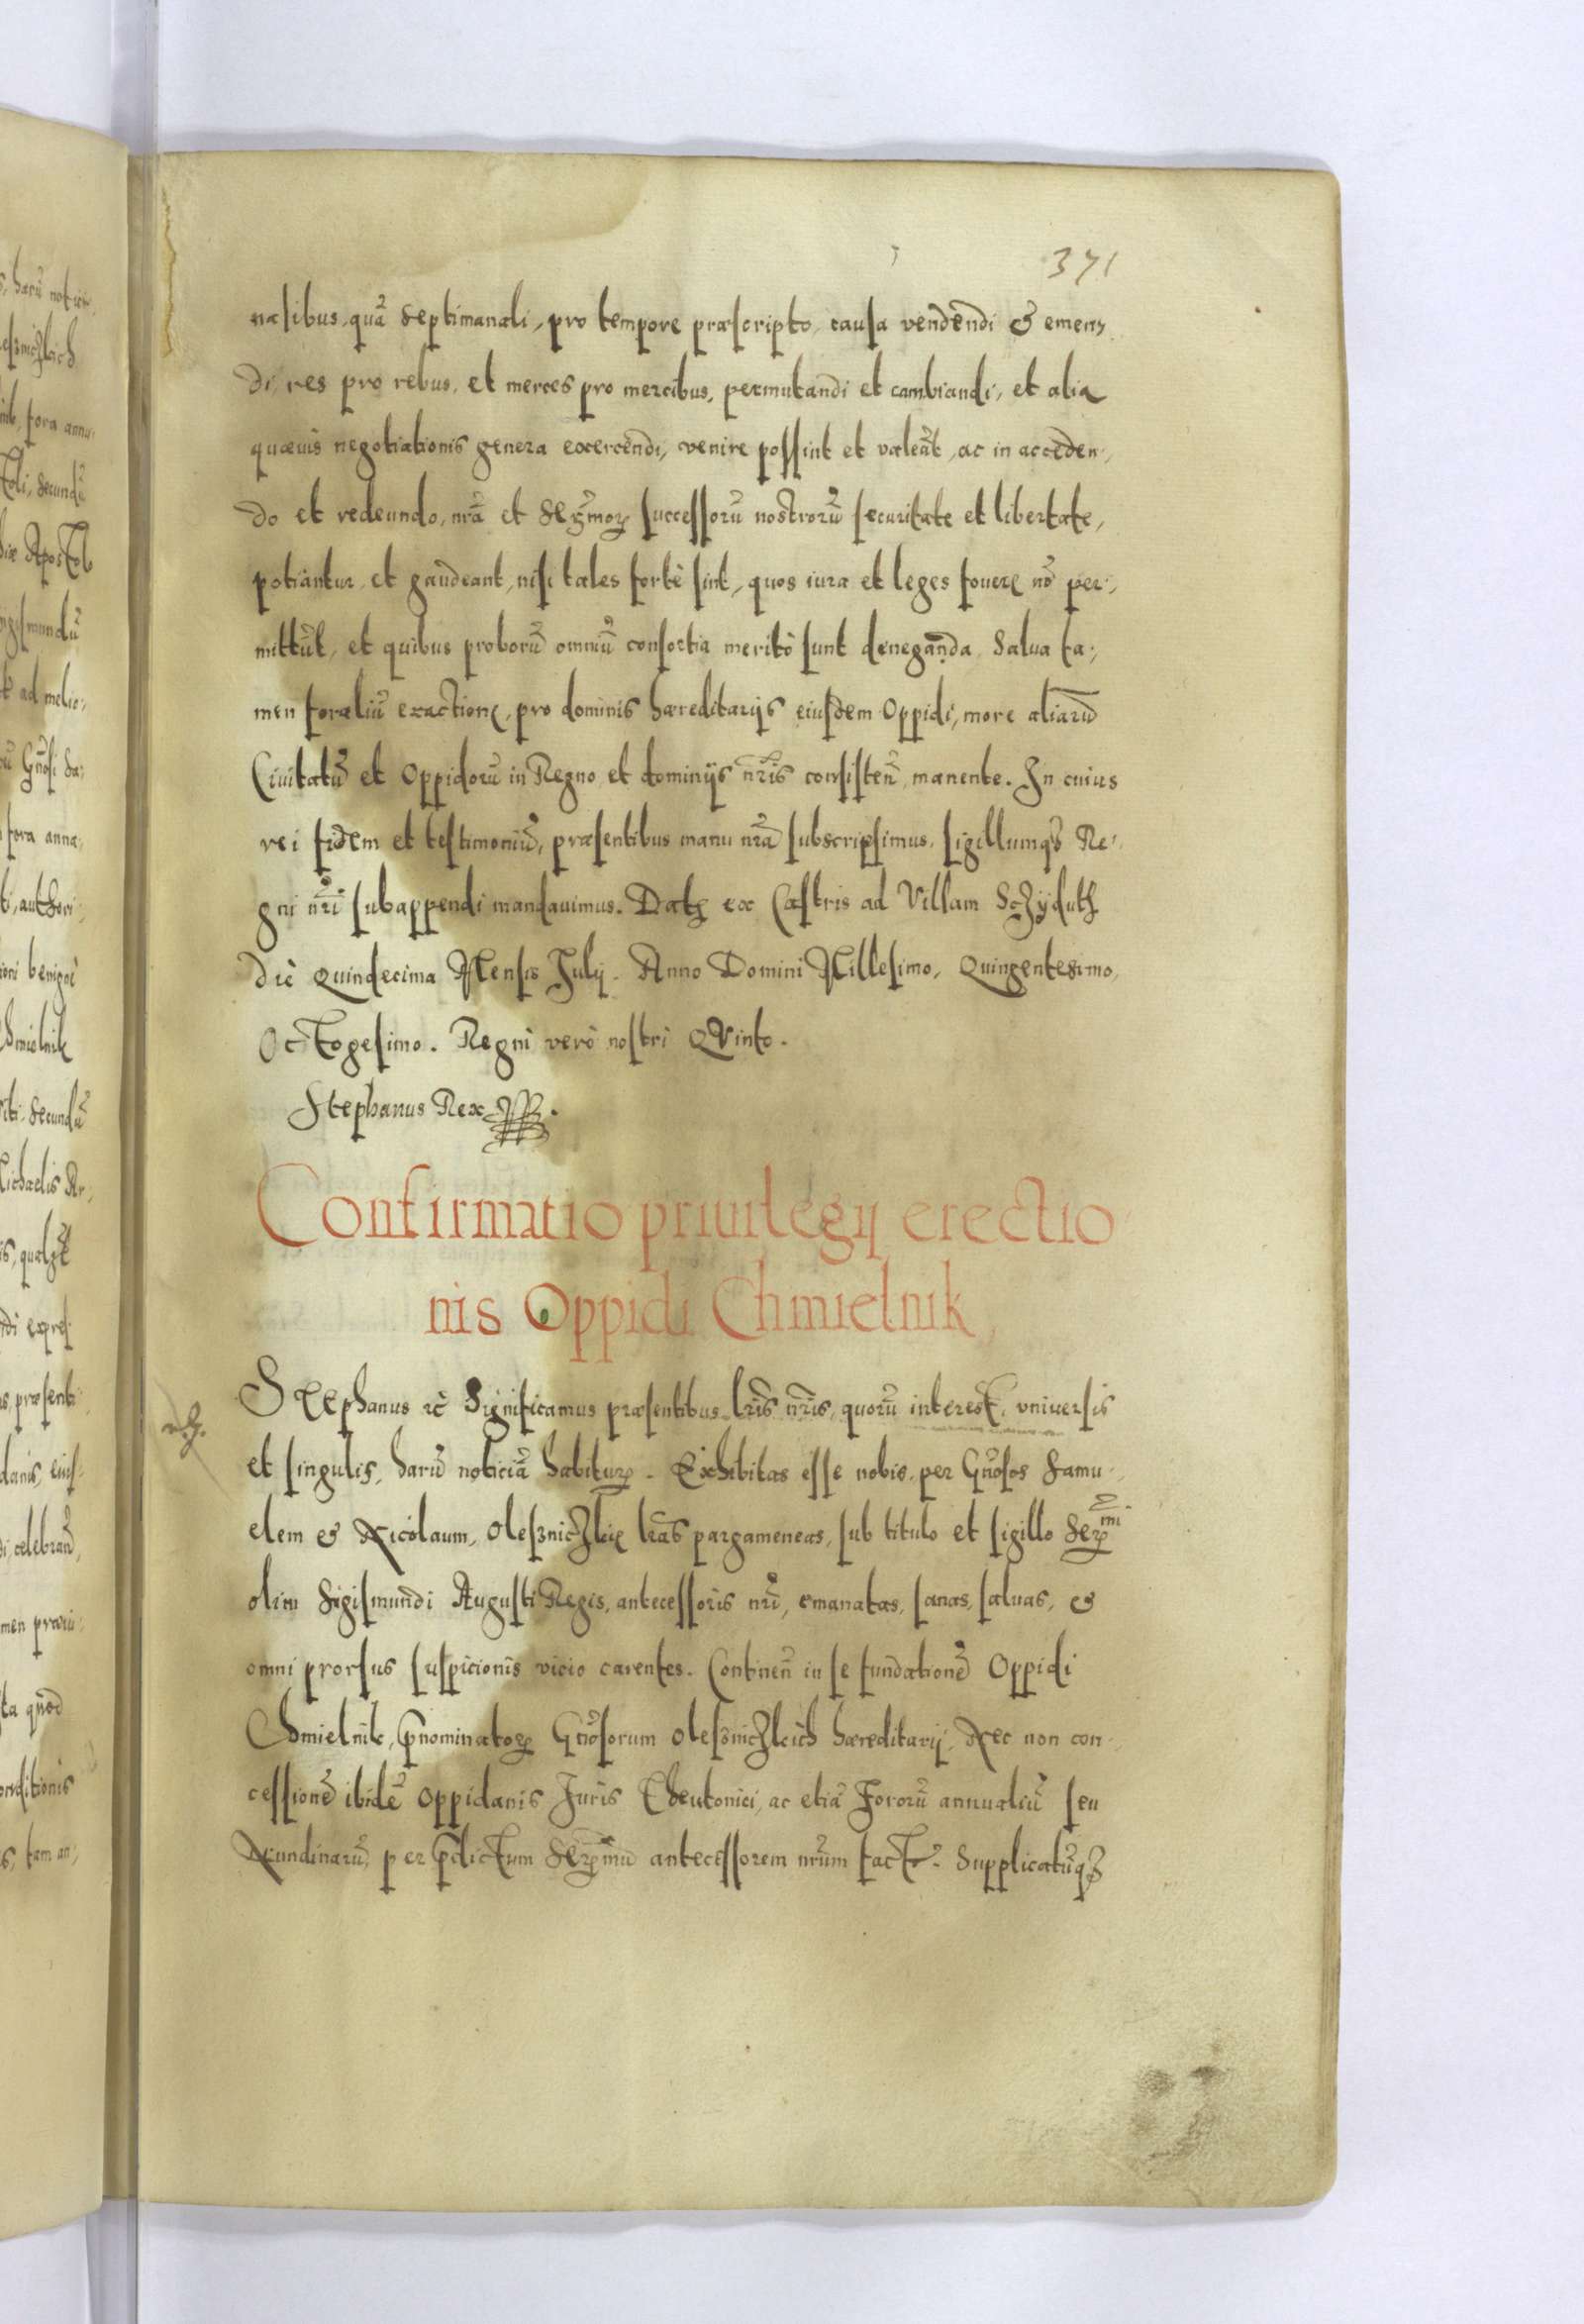 371
nalibus, quā Septimanali, pro tempore præscripto, causa vendendi & emen-
di, res pro rebus, et merces pro mercibus, permutandi et cambiandi, et alia
quævis negotiationis genera exercendi, venire possint et valeāt, ac in acceden-
do et redeundo, nrā et Serm̄orꝫ successorū nostrorū securitate et libertate,
potiantur et gaudeant, nisi tales fortè sint, quos iura et leges fouere nō per-
mittūt, et quibus proborū omniū consortia meritò sunt deneganda. Salua ta-
men foraliū exactione, pro dominis hæreditarijs eiusdem Oppidi, more aliarū
Ciuitatū et Oppidorū in Regno et dominijs nr̄is consisteñ, manente. In cuius
rei fidem et testimoniū, præsentibus manu nrā subscripsimus, sigillumqꝫ Re-
gni nr̄i subappendi mandauimus. Datꝫ ex Castris ad Villam
die Quindecima Mensis Julij. Anno Domini Millesimo, Quingentesimo,
Octogesimo. Regni verò nostri Quinto.
Stephanus Rex
Confirmatio priuilegij erectio
nis Oppidi Chmielnik,
Stephanus ꝛc̄ Significamus præsentibus lr̄is nr̄is, quorū interest, vniuersis
et singulis, harū noticiā habiturꝫ. Exhibitas esse nobis, per Gn̄osos Samu-
elem & Nicolaum, lr̄as pargameneas, sub titulo et sigillo Serꝫmi
olim Sigismundi Augusti Regis, antecessoris nr̄i, emanatas, sanas, saluas, &
omni prorsus suspicionis vicio carentes. Continen̄ in se fundationē Oppidi
Chmielnik, p̄nominatorꝫ Gn̄osorum Olesznichkich hæreditarij, Nec non con-
cessionē ibidē Oppidanis Juris Theutonici, ac etiā Fororū annualiū seu
Nundinarū, per p̄dictum Serꝫmū antecessorem nrūm fact. Supplicatūqꝫ